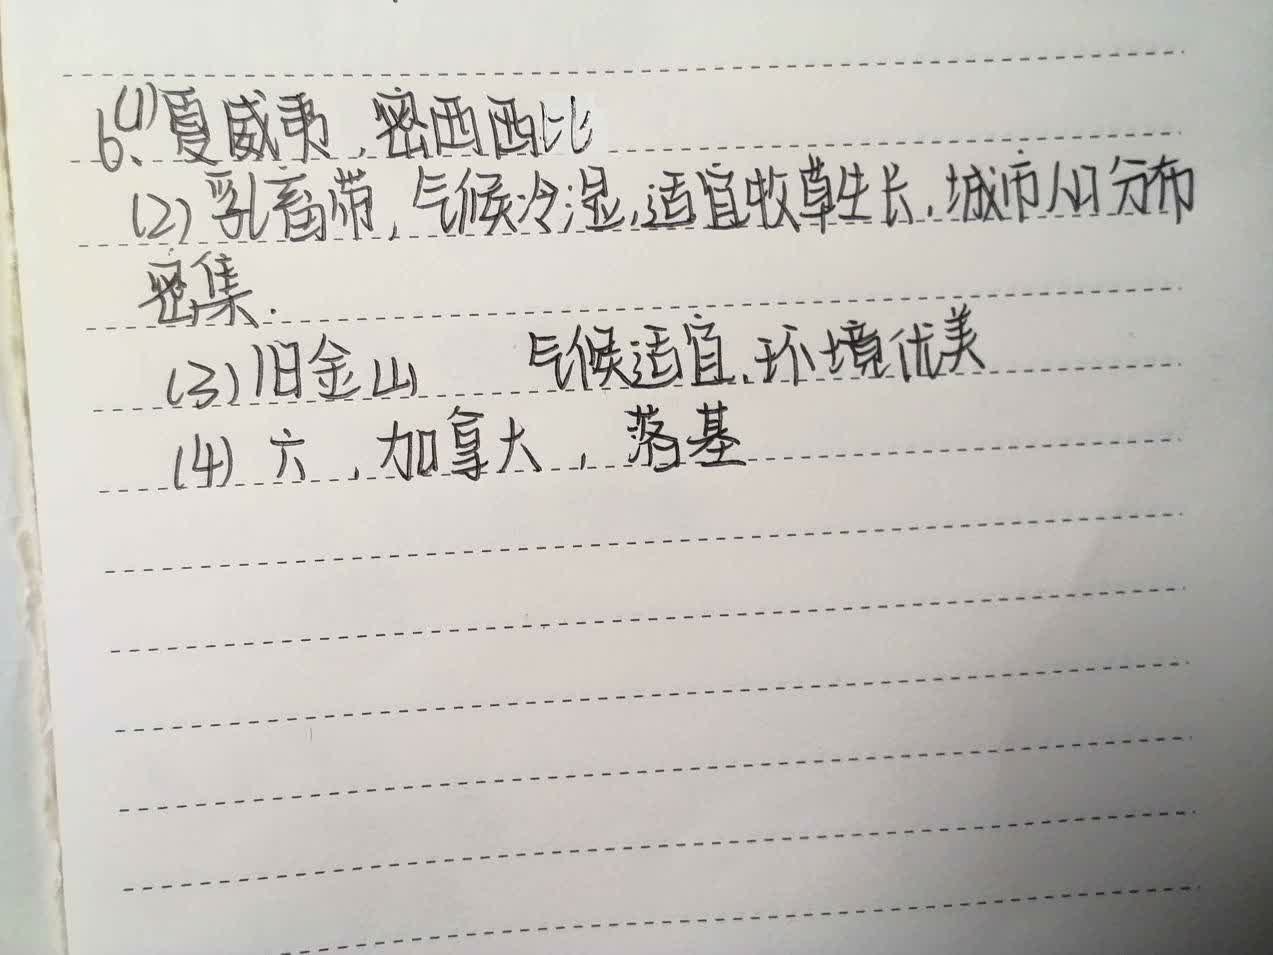 6、(1)夏威夷,密西西比
(2)乳畜带,气候冷湿,适宜牧草生长,城市人口分布
密集.
(3)旧金山 气候适宜、环境优美
(4)六,加拿大,落基